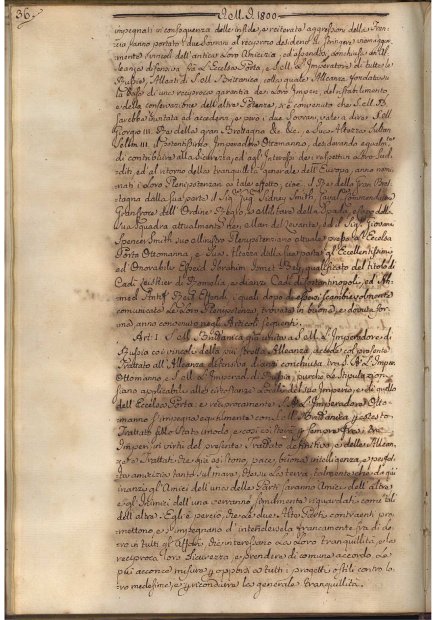 36.
A.M.D. 1800
impegnati in conseguenza delle infide, e reiterate aggressioni della Fran
cia hanno portato i due Sovrani al reciproco desiderio di stringere
mente i vincoli dell'antica loro Amicizia, ed essendosi conchiusa un Al
leanza difensiva fra L'Eccelsa Porta, e S.M. L'Imperatore di tutte le
Russie, Alleati di S.M. Britanica, colla quale Alleanza fondata su
la base di una reciproca garantia de loro Imperi, del ristabilimento,
e della conservazione dell'altre Potenze, s'è convenuto che S.M. B.
sarebbe invitata ad accedervi, e perciò i due Sovrani, vale a dire S.M.
Giorgio III. Re della gran Brettagna &c. &c. e Sua Altezza Sultan
Selim III. il potentissimo Imperadore Ottomanno, desiderando egualm.te
di contribuire alla sicurezza, ed agl'Interessi dei rispettivi loro Sud
diti, ed al ritorno della tranquillità generale dell'Europa, anno nomi
nati i loro Plenipotenziari a tale effetto, cioè il Re della Gran Bret
tagna dalla sua parte il Sig.r Gug. Sidney Smith, Caval. Commendatore
Grancroce dell'Ordine Reg.lo, e Militare della Spada,
sua Squadra attualmente nei Mari del Levante, ed il Sig.r Giovanni
Spencer Smith suo Ministro Plenipotenziario attuale presso l'Eccelsa
Porta Ottomanna, e Sua Altezza dalla sua parte gl'Eccellentissimi
ed Onorabile Esseid Ibrahim Ismet Bey, qualificato del titolo di
Cadi Leskier di Romelia, e dianzi Cadi di Costantinopoli, ed Ah
med Reis Effendi, i quali dopo d'essersi scambievolmente
comunicate le loro Plenipotenze, trovate in buona, e dovuta for
ma, anno convenuto negli Articoli seguenti.
Art: I. S.M. Britanica già unita a S.M. L'Imperadore di
Russia coi vincoli della più stretta Alleanza, accede col presente
Trattato all'Alleanza difensiva dianzi conchiusa tra S.A. L'Imper.
Ottomanno, e S.M. L'Imperad. di Russia, purchè le stipulazioni
siano applicabili alle circostanze locali del suo Imperio, e di quello
dell'Eccelsa Porta, e reciprocamente S.A. L'Imperadore Otto
manno s'impegna egualmente con S.M. Britanica, e questo
Trattato in modo, e così esisterà per sempre fra i due
Imperi in virtù del presente Trattato definitivo, e della Allean.
ed Trattati, che già esistono, pace, buona intelligenza, e perfet
ta amicizia, tanto sul mare, che su la terra, talmente che da qui
innanzi gl'Amici dell'uno delle Parti saranno Amici dell'altra
e gl'Inimici dell'una verranno similmente riguardati come tali
dell'altra. Egli è perciò, che le due Alte Parti contraenti pro
mettono, e s'impegnano d'intendersela francamente fra di lo
ro in tutti gli Affari, che interessano la loro tranquillità, e la
reciproca loro sicurezza, e prendere di comune accordo le
più acconce misure p. opporsi a tutti i progetti ostili contro lo
ro medesime, e p. ricondurre la generale tranquillità.